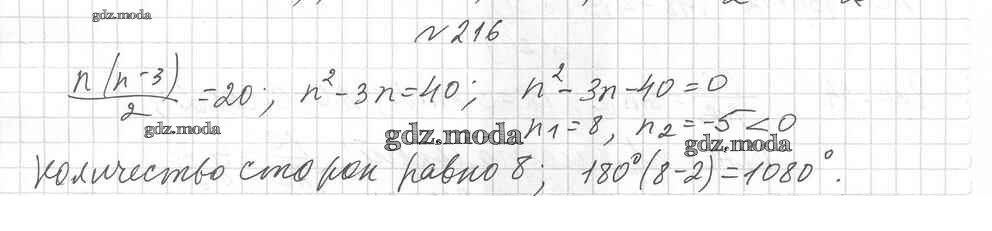 gdz.moda
№216
n(n-3)/2 = 20; n²-3n=40; n²-3n-40=0
gdz.moda
n₁=8, n₂=-5<0
gdz.moda
gdz.moda
количество сторон равно 8; 180°(8-2)=1080°.